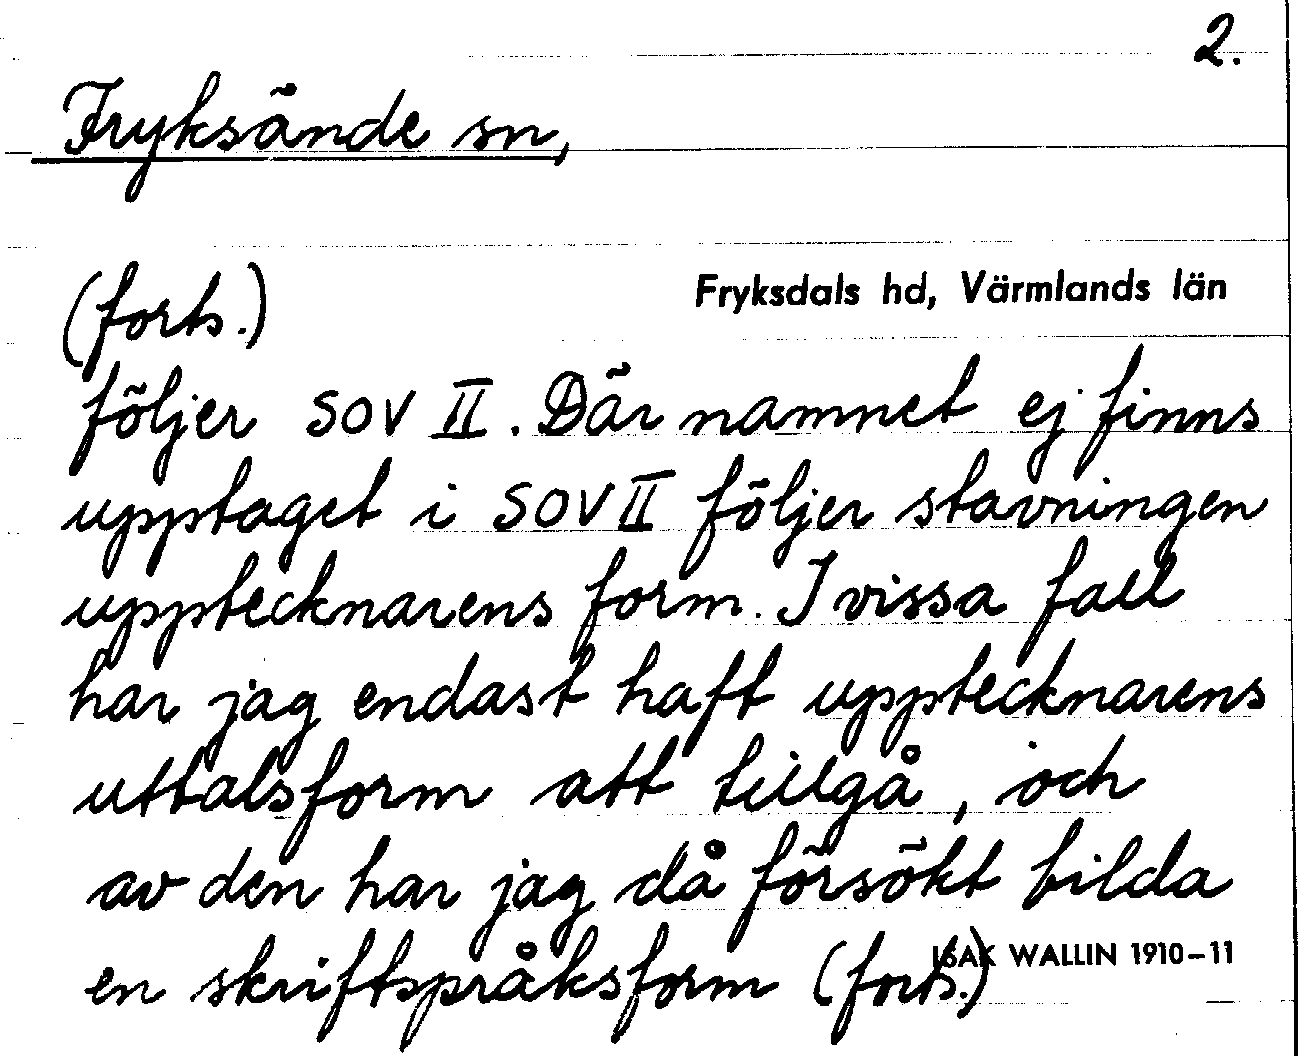 2.
Fryksände sn,
Fryksdals hd, Värmlands län
(forts.)
följer SOV II. Där namnet ej finns
upptaget i SOV II följer stavningen
upptecknarens form. I vissa fall
har jag endast haft upptecknarens
uttalsform att tillgå, och
av den har jag då försökt bilda
en skriftspråksform (forts.)
ISAK WALLIN 1910-11